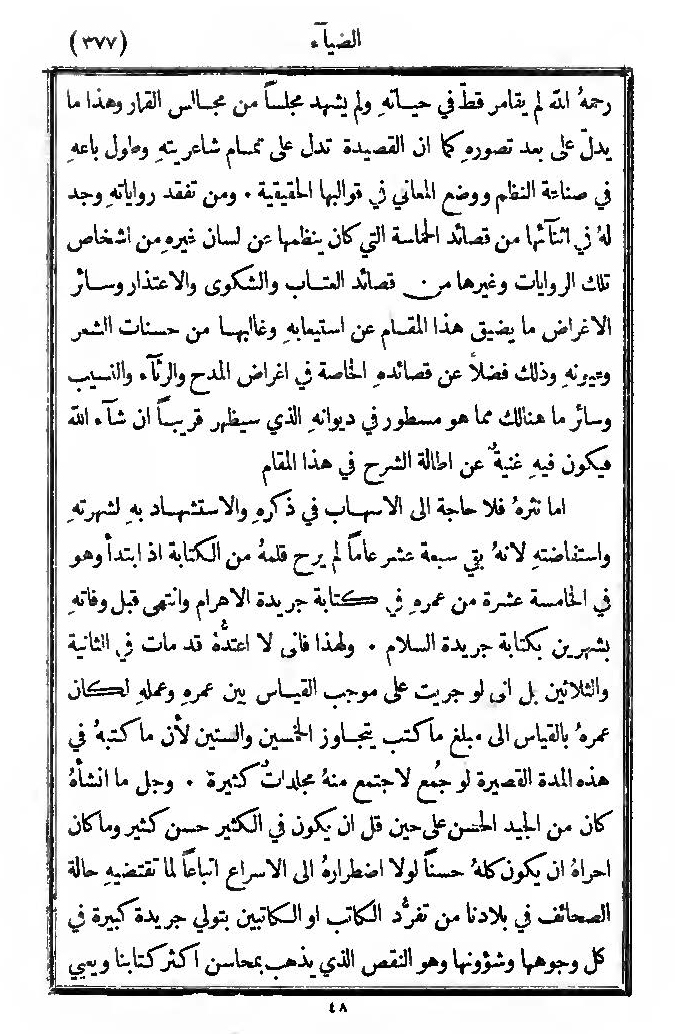 الضيآء
(٣٧٧)
رحمهُ الله لم يقامر قطّ في حياتهِ ولم يشهد مجلساً من مجالس القمار وهذا ما
يدلّ على بعد تصورهِ كما ان القصيدة تدل على تمام شاعريتهِ وطول باعهِ
في صناعة النظم ووضع المعاني في قوالبها الحقيقية ٠ ومن تفقد رواياتهِ وجد
لهُ في اثنآئها من قصائد الحماسة التي كان ينظمها عن لسان غيرهِ من اشخاص
تلك الروايات وغيرها من قصائد العتاب والشكوى والاعتذار وسائر
الاغراض ما يضيق هذا المقام عن استيعابهِ وغالبها من حسنات الشعر
وعيونهِ وذلك فضلاً عن قصائدهِ الخاصة في اغراض المدح والرثآء والنسيب
وسائر ما هنالك مما هو مسطور في ديوانهِ الذي سيظهر قريباً ان شآء الله
فيكون فيهِ غنيةٌ عن اطالة الشرح في هذا المقام
اما نثرهُ فلا حاجة الى الاسهاب في ذكرهِ والاستشهاد بهِ لشهرتهِ
واستفاضتهِ لانهُ بقي سبعة عشر عاماً لم يرح قلمهُ من الكتابة اذ ابتدأ وهو
في الخامسة عشرة من عمرهِ في كتابة جريدة الاهرام وانتهى قبل وفاتهِ
بشهرين بكتابة جريدة السلام ٠ ولهذا فاني لا اعتدُّهُ قد مات في الثانية
والثلاثين بل اني لو جريت على موجب القياس بين عمرهِ وعملهِ لكان
عمرهُ بالقياس الى مبلغ ما كتب يتجاوز الخمسين والستين لأن ما كتبهُ في
هذه المدة القصيرة لو جُمع لاجتمع منهُ مجلداتٌ كثيرة ٠ وجل ما انشأهُ
كان من الجيد الحسن على حين قل ان يكون في الكثير حسن كثير وما كان
احراهُ ان يكون كلهُ حسناً لولا اضطرارهُ الى الاسراع اتباعاً لما تقتضيهِ حالة
الصحائف في بلادنا من تفرُّد الكاتب او الكاتبين بتولي جريدة كبيرة في
كل وجوهها وشؤونها وهو النقص الذي يذهب بمحاسن اكثر كتابنا ويعيي
٤٨